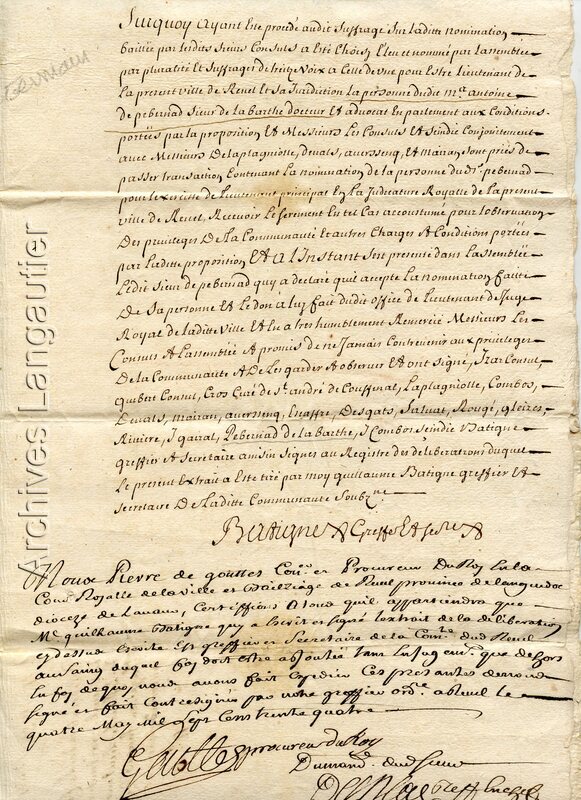 Surquoy ayant esté procédé audit suffrage sur laditte nomination
baillée par lesdits sieurs Consuls a esté choisy Eleu et nommé par lassemblée
par pluralité Et suffrages de voix a celle de vie pour Estre lieutenant de
la present ville de Revel et sa Jurisdiction la personne dudit Mre antoine
de pebernad sieur de la barthe docteur Et advocat En parlement aux Conditions
portées par la proposition Et Messieurs les Consuls et sindic Conjointement
avec Messieurs Delaplagniolle, devals, auersseng, et mairan sont priés de
passer transaction Contenant la nomination de la personne du dit sr pebernad
pour lexercisse de Lieutenant principal En la Judicature Royalle de la present
ville de Revel, Recevoir le serement En tel cas accoustumé pour lobservation
Des privileges De la Communauté et autres Charges et Conditions portées
par laditte proposition Et a l'Instant sest presenté dans lassemblée
Ledit sieur de pebernad quy a declaré quil accepte la nomination faitte
De sa personne Et le don a luy fait dudit office de lieutenant de Juge
Royal de laditte ville Et en a tres humblement Remercié Messieurs les
Consuls et lassemblée et promis de ne Jamais Contrevenir aux privileges
De la Communauté et de les garder et observer Et ont signé, Izar Consul,
guibert Consul, Cros Curé de St. andré de Couffinal, Laplagniolle, Combos,
Devals, mairan, auersseng, Enjaffre, Desgats, Salvat, Rougé, gleizes,
Riviere, J garal, Pebernad de la Barthe, J Combos sindic Batigne
greffier et Secretaire ainsin signés au Registre des deliberations duquel
le present Extrait a esté tiré par moy guillaume Batigne greffier Et
secretaire de laditte Communauté Soubzne.
Batigne Greffier Et secre
Nous Pierre de gouttes Conер et Procureur Du Roy En la
Cour Royalle de la ville et Bailliage de Revel province de languedoc
dioceze de Lavaur, Certiffions a tous quil appartiendra que
Me guilhaume Batigne quy a Escrit et signé lextrait de la deliberation
cy dessus Escrite Est greffier et Secretaire de la Comte dud Revel
au saing duquel foy doit estre adjoutée tant En Jugemt. que dehors
En foy de quoy nous avons fait Expedier Ces presantes de nous
signé et fait Contresigner par notre greffier ordre. a Revel le
quatre May mil sept Cens trente quatre
Gouttes procureur du Roy
Du mand. dud sieur
Archives Langautier